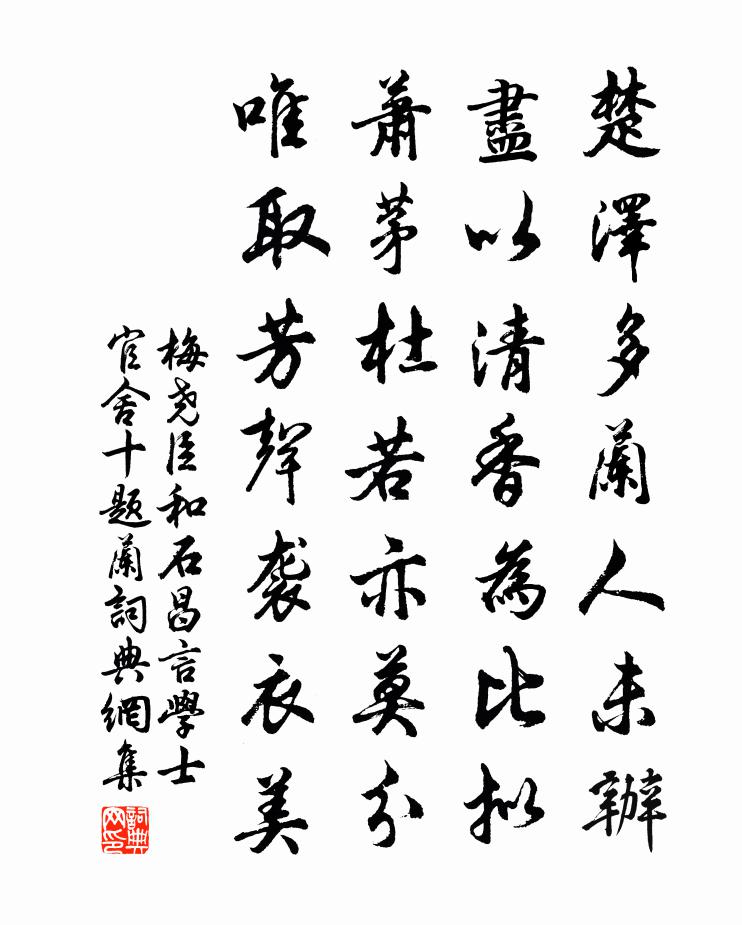 楚澤多蘭人未辦
盡以清香為比拟
蕭茅杜若亦莫分
唯取芳聲袭衣美
梅尧臣和石昌言學士
官舍十题蘭詞典網集
詞典网印